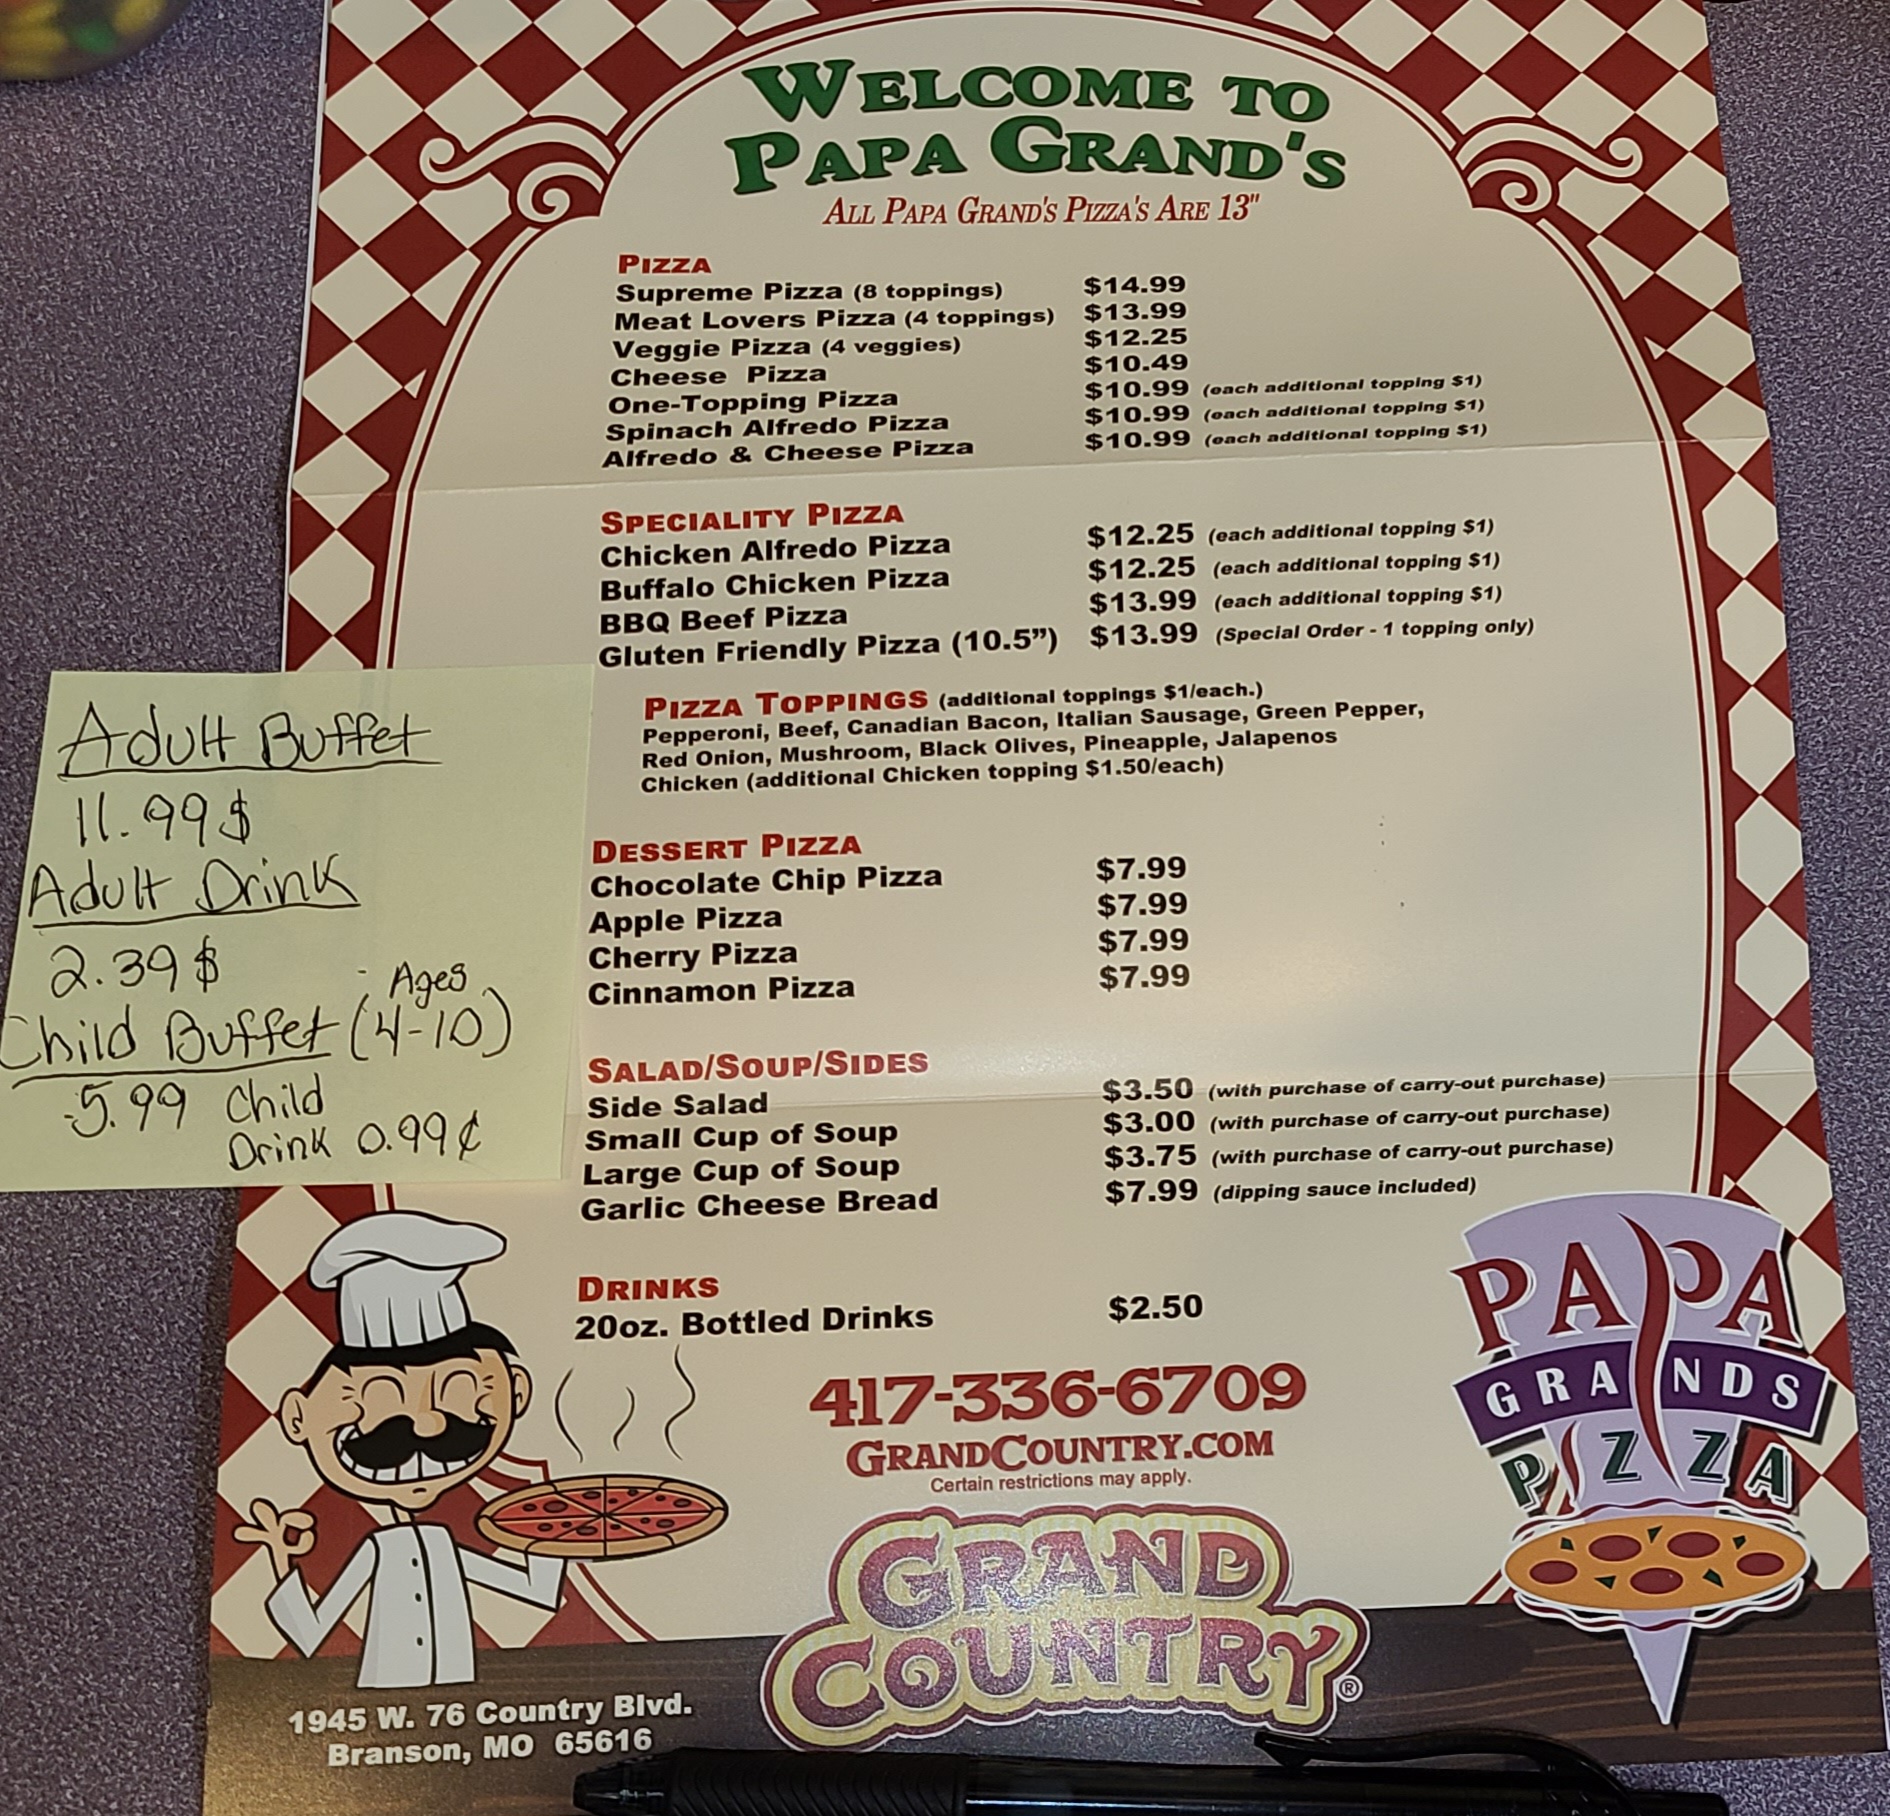 WELCOME TO
PAPA GRAND'S
ALL PAPA GRAND'S PIZZA'S ARE 13"
PIZZA
Supreme Pizza (8 toppings) $14.99
Meat Lovers Pizza (4 toppings) $13.99
Veggie Pizza (4 veggies) $12.25
Cheese Pizza $10.49
One-Topping Pizza $10.99 (each additional topping $1)
Spinach Alfredo Pizza $10.99 (each additional topping $1)
Alfredo & Cheese Pizza $10.99 (each additional topping $1)
SPECIALITY PIZZA
Chicken Alfredo Pizza $12.25 (each additional topping $1)
Buffalo Chicken Pizza $12.25 (each additional topping $1)
BBQ Beef Pizza $13.99 (each additional topping $1)
Gluten Friendly Pizza (10.5") $13.99 (Special Order - 1 topping only)
PIZZA TOPPINGS (additional toppings $1/each.)
Pepperoni, Beef, Canadian Bacon, Italian Sausage, Green Pepper,
Red Onion, Mushroom, Black Olives, Pineapple, Jalapenos
Chicken (additional Chicken topping $1.50/each)
DESSERT PIZZA
Chocolate Chip Pizza $7.99
Apple Pizza $7.99
Cherry Pizza $7.99
Cinnamon Pizza $7.99
SALAD/SOUP/SIDES
Side Salad $3.50 (with purchase of carry-out purchase)
Small Cup of Soup $3.00 (with purchase of carry-out purchase)
Large Cup of Soup $3.75 (with purchase of carry-out purchase)
Garlic Cheese Bread $7.99 (dipping sauce included)
DRINKS
20oz. Bottled Drinks $2.50
417-336-6709
GRANDCOUNTRY.COM
Certain restrictions may apply.
GRAND
COUNTRY®
1945 W. 76 Country Blvd.
Branson, MO 65616
PAPA
GRANDS
PIZZA
Adult Buffet
11.99$
Adult Drink
2.39$
- Ages
Child Buffet (4-10)
5.99 Child
Drink 0.99¢